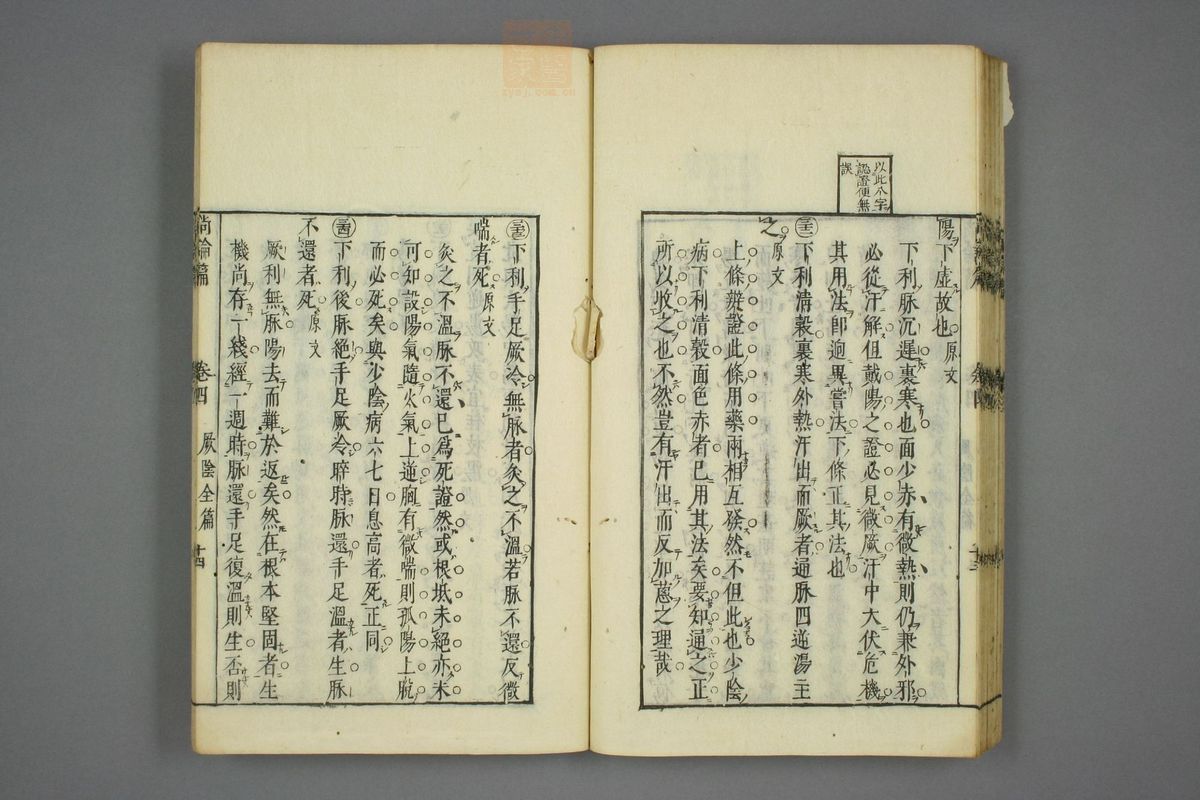 以此八字
認證便無
誤
陽下虛故也 原文
下利脉沉遲裏寒也面少赤有微熱則仍兼外邪
必從汗解但戴陽之證必見微厥汗中大伏危機
其用法卽迥異嘗法下條正其法也
下利淸榖裏寒外熱汗出而厥者通脉四逆湯主
之 原文
上條辨證此條用藥兩相互發然不但此也少陰
病下利淸榖面色赤者已用其法矣要知通之正
所以收之也不然豈有汗出而反加蔥之理哉
下利手足厥冷無脉者灸之不溫若脉不還反微
喘者死 原文
灸之不溫脉不還已爲死證然或根柢未絕亦未
可知設陽氣隨火氣上逆胸有微喘則孤陽上脫
而必死矣與少陰病六七日息高者死正同
下利後脉絕手足厥冷晬時脉還手足溫者生脉
不還者死 原文
厥利無脉陽去而難於返矣然在根本堅固者生
機尚存一綫經一週時脉還手足復溫則生否則
尚論篇 卷四 厥陰全篇 十四